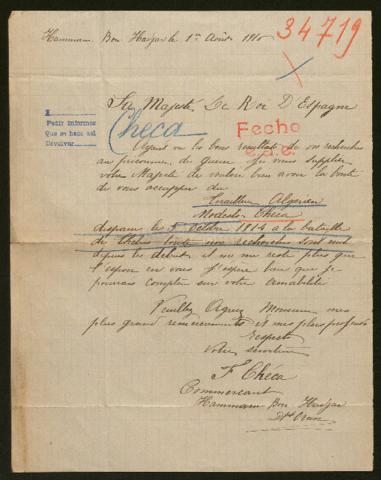 Hammam Bou Hadjar le 1er Août 1916
34719
Sa Majesté Le Roi D'Espagne
1
Pedir informes
Que se hace así
Devolver
Checa
Fecho
Ayant vu les bons resultats de vos recherches
au prisonnier de guerre je vous supplie
votre Majesté de vouloir bien avoir la bonté
de vous occupper du
Tirailleur Algerien
Modesto Checa
disparu le 5 Octobre 1914 à la bataille
de toute mes recherches sont nul
depuis le debut il ne me reste plus que
l'espoir en vous J'espere bien que je
pourais compter sur votre amabilité
Veuillez Agreez Monsieur mes
plus grand remerciements et mes plus profonds
respects
Votre serviteur
F Chéca
Commercant
Hammam Bou Hadjar
Dt Oran